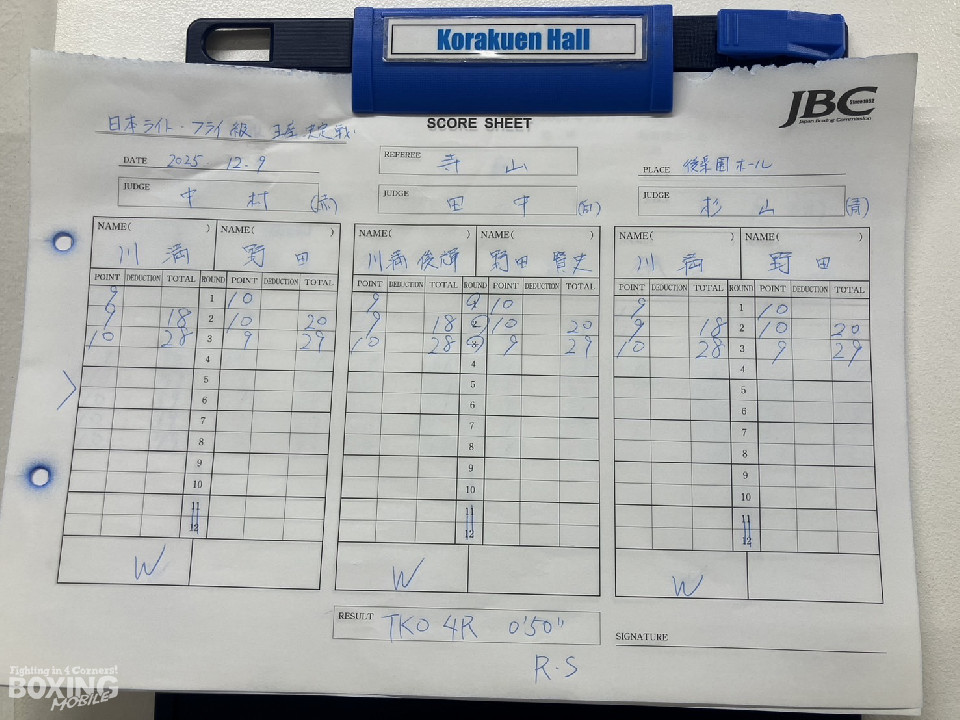 Korakuen Hall
JBC
Japan Boxing Commission
SCORE SHEET
日本ライト・フライ級 王座決定戦
DATE 2025 12.9
REFEREE 寺山
PLACE 後楽園ホール
JUDGE 中村
JUDGE 田中
JUDGE 杉山
NAME( ) NAME( ) NAME( ) NAME( ) NAME( ) NAME( )
川満 野田 川満俊輝 野田賢史 川満 野田
POINT DEDUCTION TOTAL ROUND POINT DEDUCTION TOTAL POINT DEDUCTION TOTAL ROUND POINT DEDUCTION TOTAL POINT DEDUCTION TOTAL ROUND POINT DEDUCTION TOTAL
9 1 10 9 10 9 1 10
9 18 2 10 20 9 18 10 20 9 18 2 10 20
10 28 3 9 29 10 28 9 29 10 28 3 9 29
4 4 4
5 5 5
6 6 6
7 7 7
8 8 8
9 9 9
10 10 10
11 11 11
12 12 12
W W W
RESULT TKO 4R 0'50"
SIGNATURE
R.S
Fighting in 4 Corners!
BOXING
MOBILE